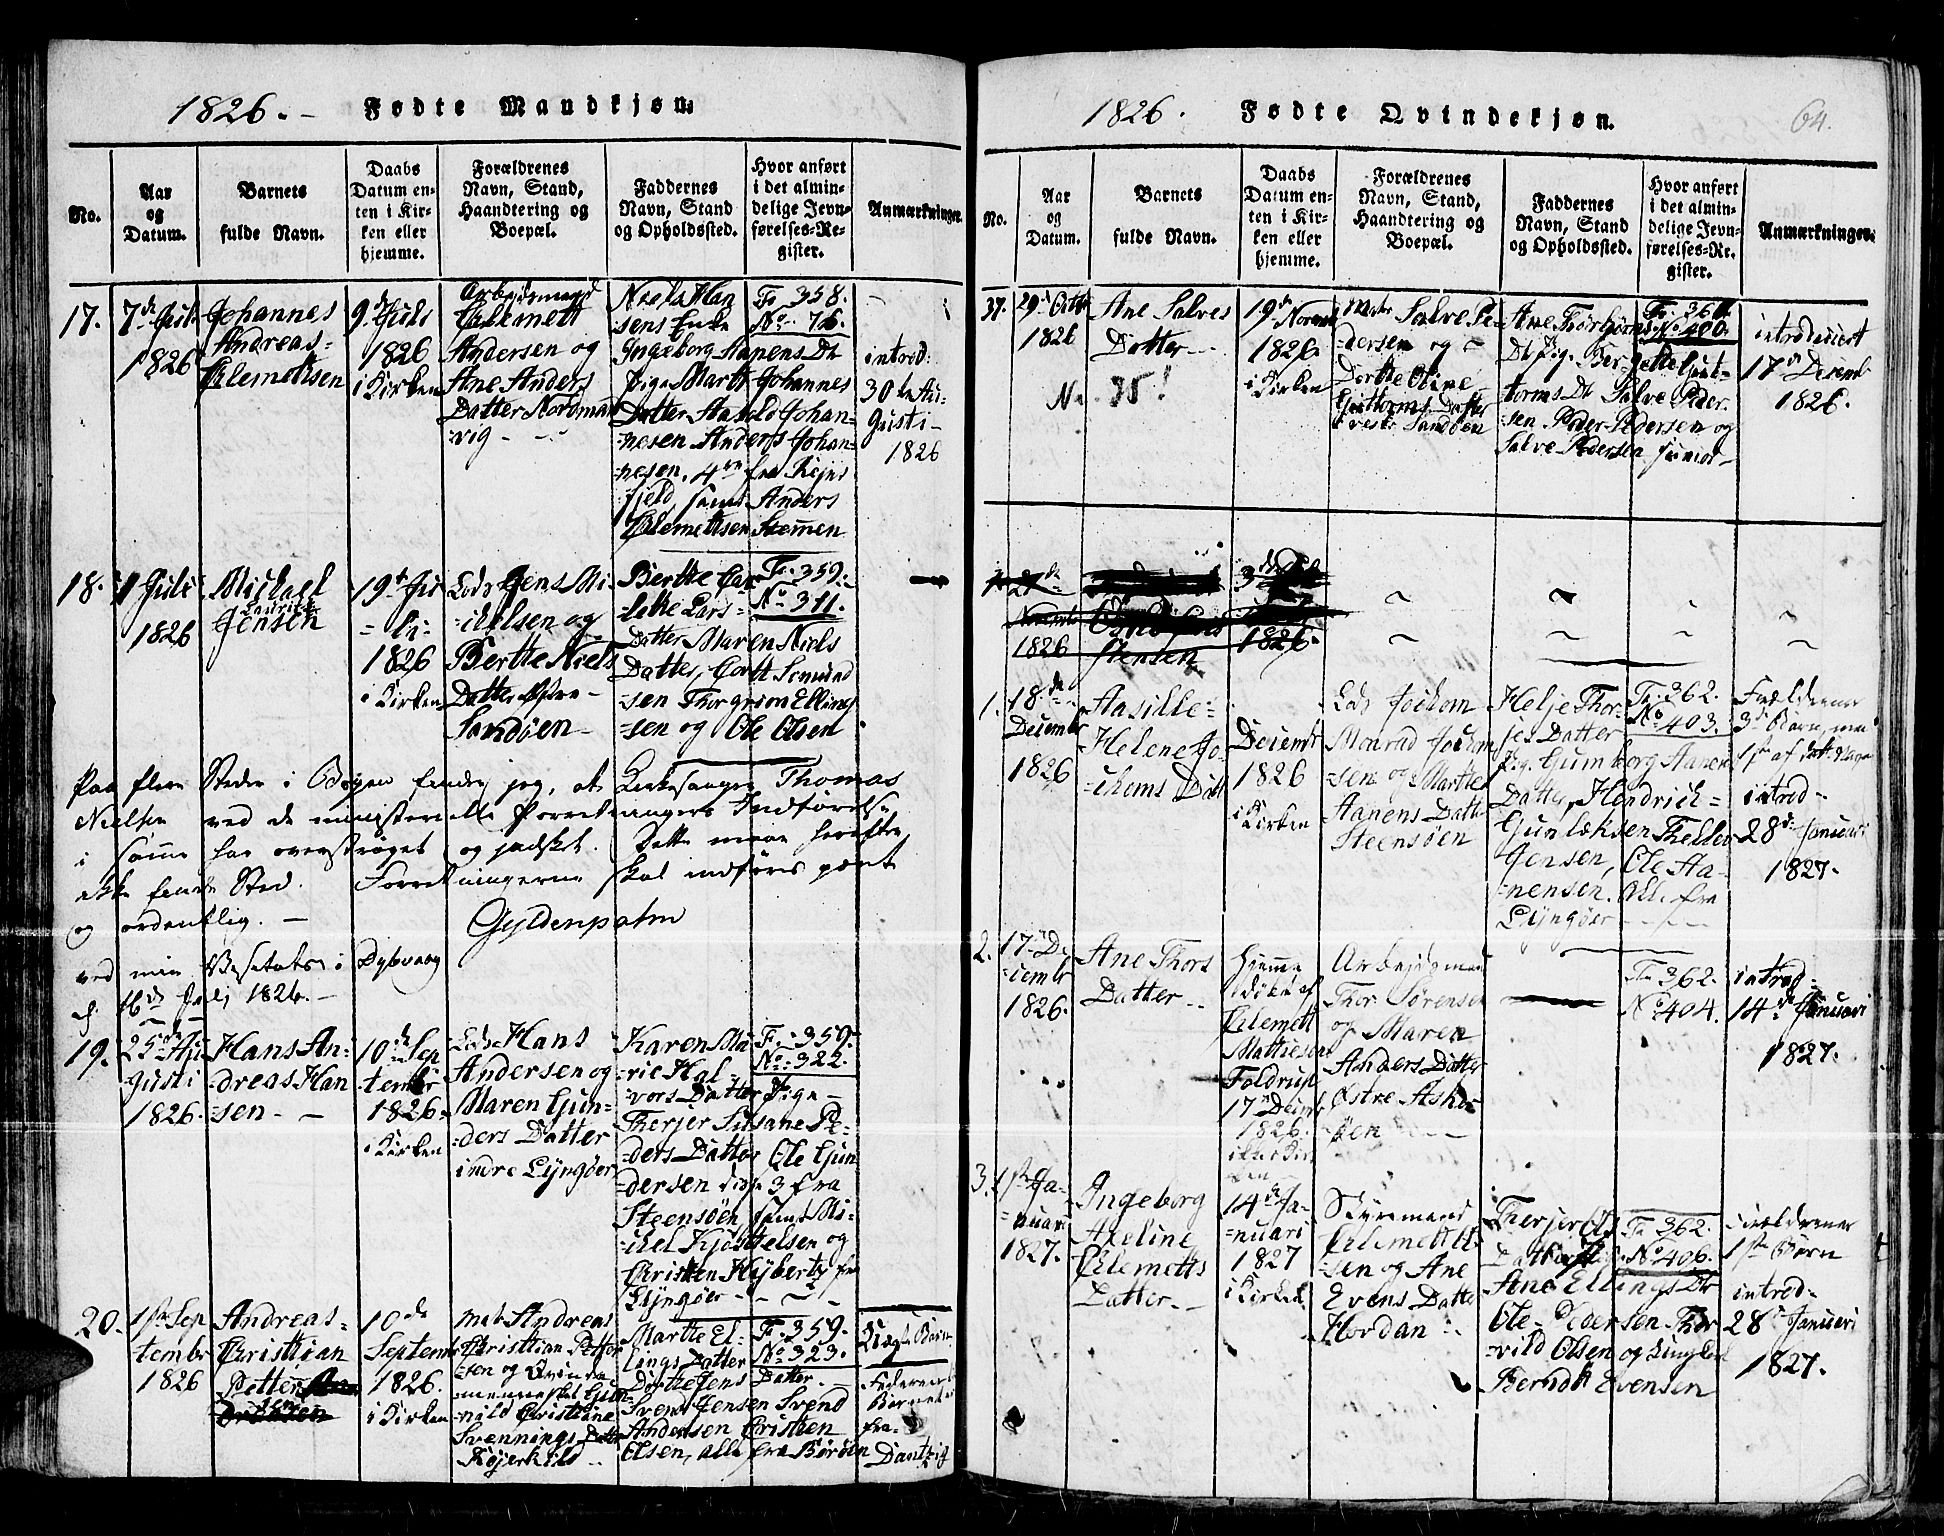 1826. - Fødte Mandkjøn.
No.
Aar
og
Datum.
Barnets
fulde Navn.
Daabs
Datum en-
ten i Kir-
ken eller
hjemme.
Forældrenes
Navn, Stand,
Haandtering og
Boepæl.
Faddernes
Navn, Stand
og Opholdssted.
Hvor anført
i det almin-
delige Jevn-
førelses-Re-
gister.
Anmærkninger.
17.
7de Juli
1826
Johannes
Andreas
Clemetsen
9de Juli
1826
i Kirken
Arbejdsmand
Clemett
Andersen og
Ane Anders
Datter Nordman
vig -
Niels Han
sens Enke
Ingeborg Aanens Dt
Pige Marte Johannes
Datter Aasold Johan-
nesen Anders Johan-
nesen, 4re fra
fjeld, samt Anders
Clemettsen Stemmen
Fo 358.
No 76.
introd:
30te Au-
gusti
1826
18.
Juli
1826
Michael
Lauritz
Jensen
19de Ju
li
1826
i Kirken
Lods Jens Mi-
ichelsen og
Berthe Niels
Datter Østre
Sandøen
Berthe Car
Lars-
Datter Maren Niels
Datter, Cort Semund
sen Thorgrim Ellings
sen og Ole Olsen
Fo. 359.
No 311.
Paa flere Steder i Bogen finder jeg, at Kirkesanger Thomas
Nielsen ved de ministerielle Forretningers Indførelse
i samme har overstrøget og jadsket. Dette maa herefter
ikke finde Sted. Forretningerne skal indføres pænt
og ordentlig. -
Gyldenpalm
ved min Visitats i Dybvaag
d. 16de Juli 1826. -
19.
25de Au
gusti
1826.
Hans An-
dreas Han
sen -
10de Sep
tembr
1826.
i Kirken
Lods Hans
Andersen og
Maren Gun-
ders Datter
indre Lyngøer
Karen Ma
rie Hal-
vors Datter Pige
Therjer Susane Pe-
ders Datter Ole Gun
dersen disse 3 fra
Steensøen, samt Mi-
ichel Kjøstelsen og
Christen Hybertz fra
Lyngøer -
Fo. 359.
No. 322.
20.
1ste Sep
tembr
1826
Andreas
Christian
Petter
10de
Septembr
1826.
i Kirken
Andreas
Christian Petter
sen og Qvinde
mennesket Gun
nild Christiane
Svennings Datter
Kojerkiil
Marthe El-
lings Datter
Dorthe Jens Datter
Svend Jensen Svend
Andersen Christen
Olsen, alle fra Borøen
Fo. 359.
No. 323.
Uægte Barn
Faderen
Barnet
fra
Dantzig
1826. Fødte Qvindekjøn. 64.
No.
Aar
og
Datum.
Barnets
fulde Navn.
Daabs
Datum en-
ten i Kir-
ken eller
hjemme.
Forældrenes
Navn, Stand,
Haandtering og
Boepæl.
Faddernes
Navn, Stand
og Opholdssted.
Hvor anført
i det almin-
delige Jevn-
førelses-Re-
gister.
Anmærkninger.
37.
29de Octbr
1826
No. 35!
Ane Salves
Datter -
19de Novembr
1826.
i Kirken
Salve Pe-
dersen og
Dorthe Oline
Guttorms Datter
Sandøen
Ane Thorbjørns
Dt Pig. Bergette Gut-
torms Dt Salve Peder-
sen Peder Pedersen og
Salve Pedersen junior
Fo. 360.
No 400.
introduciert
17de Decemb
1826.
27de
Novembr
1826
3de
1826.
1.
18de
Decembr
1826
Aasille
Helene Jo
ichoms Datt
Decembr
1826
i Kirken
Lods Jochom
Monrad Jochom
sen og Marthe
Aanens Datter
Steensøen
Helje Thor-
jes Datter
Pig. Gunborg Aanens
Datter, Hendrich
Gunlæksen Thellev
Jensen, Ole Aa-
nensen. Alle fra
Lyngøer
Fo. 362.
No 403.
Forældrenes
3de Barn, men
introd-
28de Januari
1827.
2.
17de De
cembr
1826.
Ane Thors
Datter -
hjemme
døbt af
Clemett
Mathiesen
Foldrup
17de Decembr
1826.
Arbejdsmand
Thor Sørensen
og Maren
Anders Datter
Østre Asker
øen
Fo 362.
No 404.
introd-
14de Januari
1827.
3.
1ste Ja-
nuar
1827.
Ingeborg
Axeline
Clemetts
Datter -
14de Ja-
nuari
1827
i Kirken
Styrmand
Clemett
sen og Ane
Evens Datter
Hordan
Therjer Ols
Datter
Ane Ellings Dt
Ole Pedersen Thor
vild Olsen og
Berndt Evensen
Fo 362.
No 406.
Forældrenes
1ste Børn
introd-
28de Januari
1827.